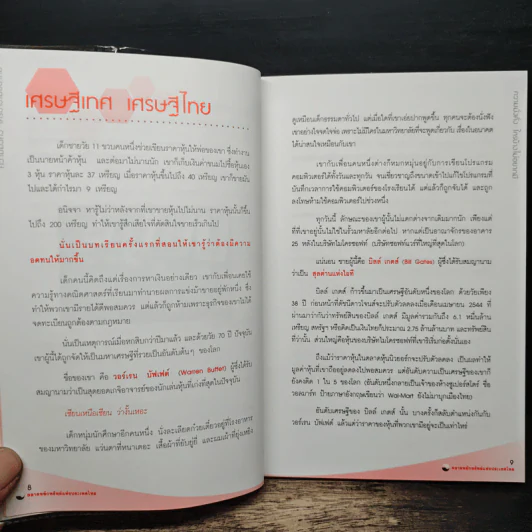 เศรษฐีเทศ เศรษฐีไทย
เด็กชายวัย 11 ขวบคนหนึ่งช่วยเขียนราคาหุ้นให้พ่อของเขา ซึ่งทำงาน
เป็นนายหน้าค้าหุ้น และต่อมาไม่นานนัก เขาก็เก็บเงินค่าขนมไปซื้อหุ้นเอง
3 หุ้น ราคาหุ้นละ 37 เหรียญ เมื่อราคาหุ้นขึ้นไปถึง 40 เหรียญ เขาก็ขายมัน
ไปและได้กำไรมา 9 เหรียญ
อนิจจา หารู้ไม่ว่าหลังจากที่เขาขายหุ้นไปไม่นาน ราคาหุ้นนั้นก็ขึ้น
ไปถึง 200 เหรียญ ทำให้เขารู้สึกเสียใจที่ตัดสินใจขายเร็วเกินไป
นั่นเป็นบทเรียนครั้งแรกที่สอนให้เขารู้ว่าต้องมีความ
อดทนให้มากขึ้น
เด็กคนนี้คิดถึงแต่เรื่องการหาเงินอย่างเดียว เขากับเพื่อนเคยใช้
ความรู้ทางคณิตศาสตร์ที่เรียนมาทำนายผลการแข่งม้าขายอยู่พักหนึ่ง ซึ่ง
ทำให้พวกเขามีรายได้ดีพอสมควร แต่แล้วก็ถูกห้ามเพราะธุรกิจของเขาไม่ได้
จดทะเบียนถูกต้องตามกฎหมาย
นั่นเป็นเหตุการณ์เมื่อหกสิบกว่าปีมาแล้ว และด้วยวัย 70 ปี ปัจจุบัน
เขาผู้นี้ได้ถูกจัดให้เป็นมหาเศรษฐีที่รวยเป็นอันดับต้นๆ ของโลก
ชื่อของเขา คือ วอร์เรน บัฟเฟต์ (Warren Buffet) ผู้ซึ่งได้รับ
สมญานามว่าเป็นสุดยอดเกจิอาจารย์ของนักเล่นหุ้นที่เก่งที่สุดในปัจจุบัน
เซียนเหนือเซียน ว่างั้นเหอะ
เด็กหนุ่มนักศึกษาอีกคนหนึ่ง นั่งละเลียดก๋วยเตี๋ยวอยู่ที่โรงอาหาร
ของมหาวิทยาลัย แว่นตาที่หนาเตอะ เสื้อผ้าที่ยับยู่ยี่ และผมเผ้าที่ยุ่งเหยิง
8
ดูเหมือนเด็กธรรมดาทั่วไป แต่เมื่อใดที่เขาเอ่ยปากพูดขึ้น ทุกคนจะต้องนั่งฟัง
เขาอย่างใจจดใจจ่อ เพราะไม่มีใครในมหาวิทยาลัยที่จะพูดเกี่ยวกับ เรื่องในอนาคต
ได้น่าสนใจเหมือนกับเขา
เขากับเพื่อนคนหนึ่งต่างก็หมกมุ่นอยู่กับการเขียนโปรแกรม
คอมพิวเตอร์ทั้งวันและทุกวัน จนเชี่ยวชาญถึงขนาดเข้าไปแก้ไขโปรแกรมที่
บันทึกเวลาการใช้คอมพิวเตอร์ของโรงเรียนได้ แต่แล้วก็ถูกจับได้ และถูก
ลงโทษห้ามใช้คอมพิวเตอร์ไปช่วงหนึ่ง
ทุกวันนี้ ลักษณะของเขาผู้นั้นไม่แตกต่างจากเดิมมากนัก เพียงแต่
ที่ที่เขาอยู่นั้นไม่ใช่ในรั้วมหาลัยอีกต่อไป หากเป็นอาณาจักรของอาคาร
25 หลังในบริษัทไมโครซอฟท์ (บริษัทซอฟท์แวร์ที่ใหญ่ที่สุดในโลก)
แน่นอน ชายผู้นี้คือ บิลล์ เกตส์ (Bill Gates) ผู้ซึ่งได้รับสมญานาม
ว่าเป็น สุลต่านแห่งไอที
บิลล์ เกตส์ ก้าวขึ้นมาเป็นเศรษฐีอันดับหนึ่งของโลก ด้วยวัยเพียง
38 ปี ก่อนหน้าที่ดัชนีดาวโจนส์จะปรับตัวลดลงเมื่อเดือนเมษายน 2544 ที่
ผ่านมาว่ากันว่าทรัพย์สินของบิลล์ เกตส์ มีมูลค่ารวมกันถึง 6.1 หมื่นล้าน
เหรียญ สหรัฐฯ หรือคิดเป็นเงินไทยประมาณ 2.75 ล้านล้านบาท และทรัพย์สิน
ที่ว่านั้น ส่วนใหญ่คือหุ้นของบริษัทไมโครซอฟท์ที่เขาริเริ่มก่อตั้งนั่นเอง
ถึงแม้ว่าราคาหุ้นในตลาดหุ้นนิวยอร์กจะปรับตัวลดลง เป็นผลทำให้
มูลค่าหุ้นที่เขาถืออยู่ลดลงไปพอสมควร แต่อันดับความเป็นเศรษฐีของเขาก็
ยังคงติด 1 ใน 5 ของโลก (อันดับหนึ่งกลายเป็นเจ้าของห้างซูเปอร์สโตร์ ชื่อ
วอลมาร์ท ป้ายภาษาอังกฤษเขียนว่า Wal-Mart ยังไม่มาบุกเมืองไทย)
อันดับเศรษฐีของ บิลล์ เกตส์ นั้น บางครั้งก็สลับตำแหน่งกันกับ
วอร์เรน บัฟเฟต์ แล้วแต่ว่าราคาของหุ้นที่พวกเขามีอยู่จะเป็นเท่าไหร่
9